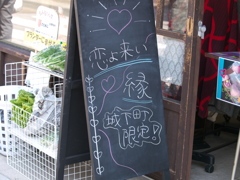 恋よ来い
縁
城下町
限定!